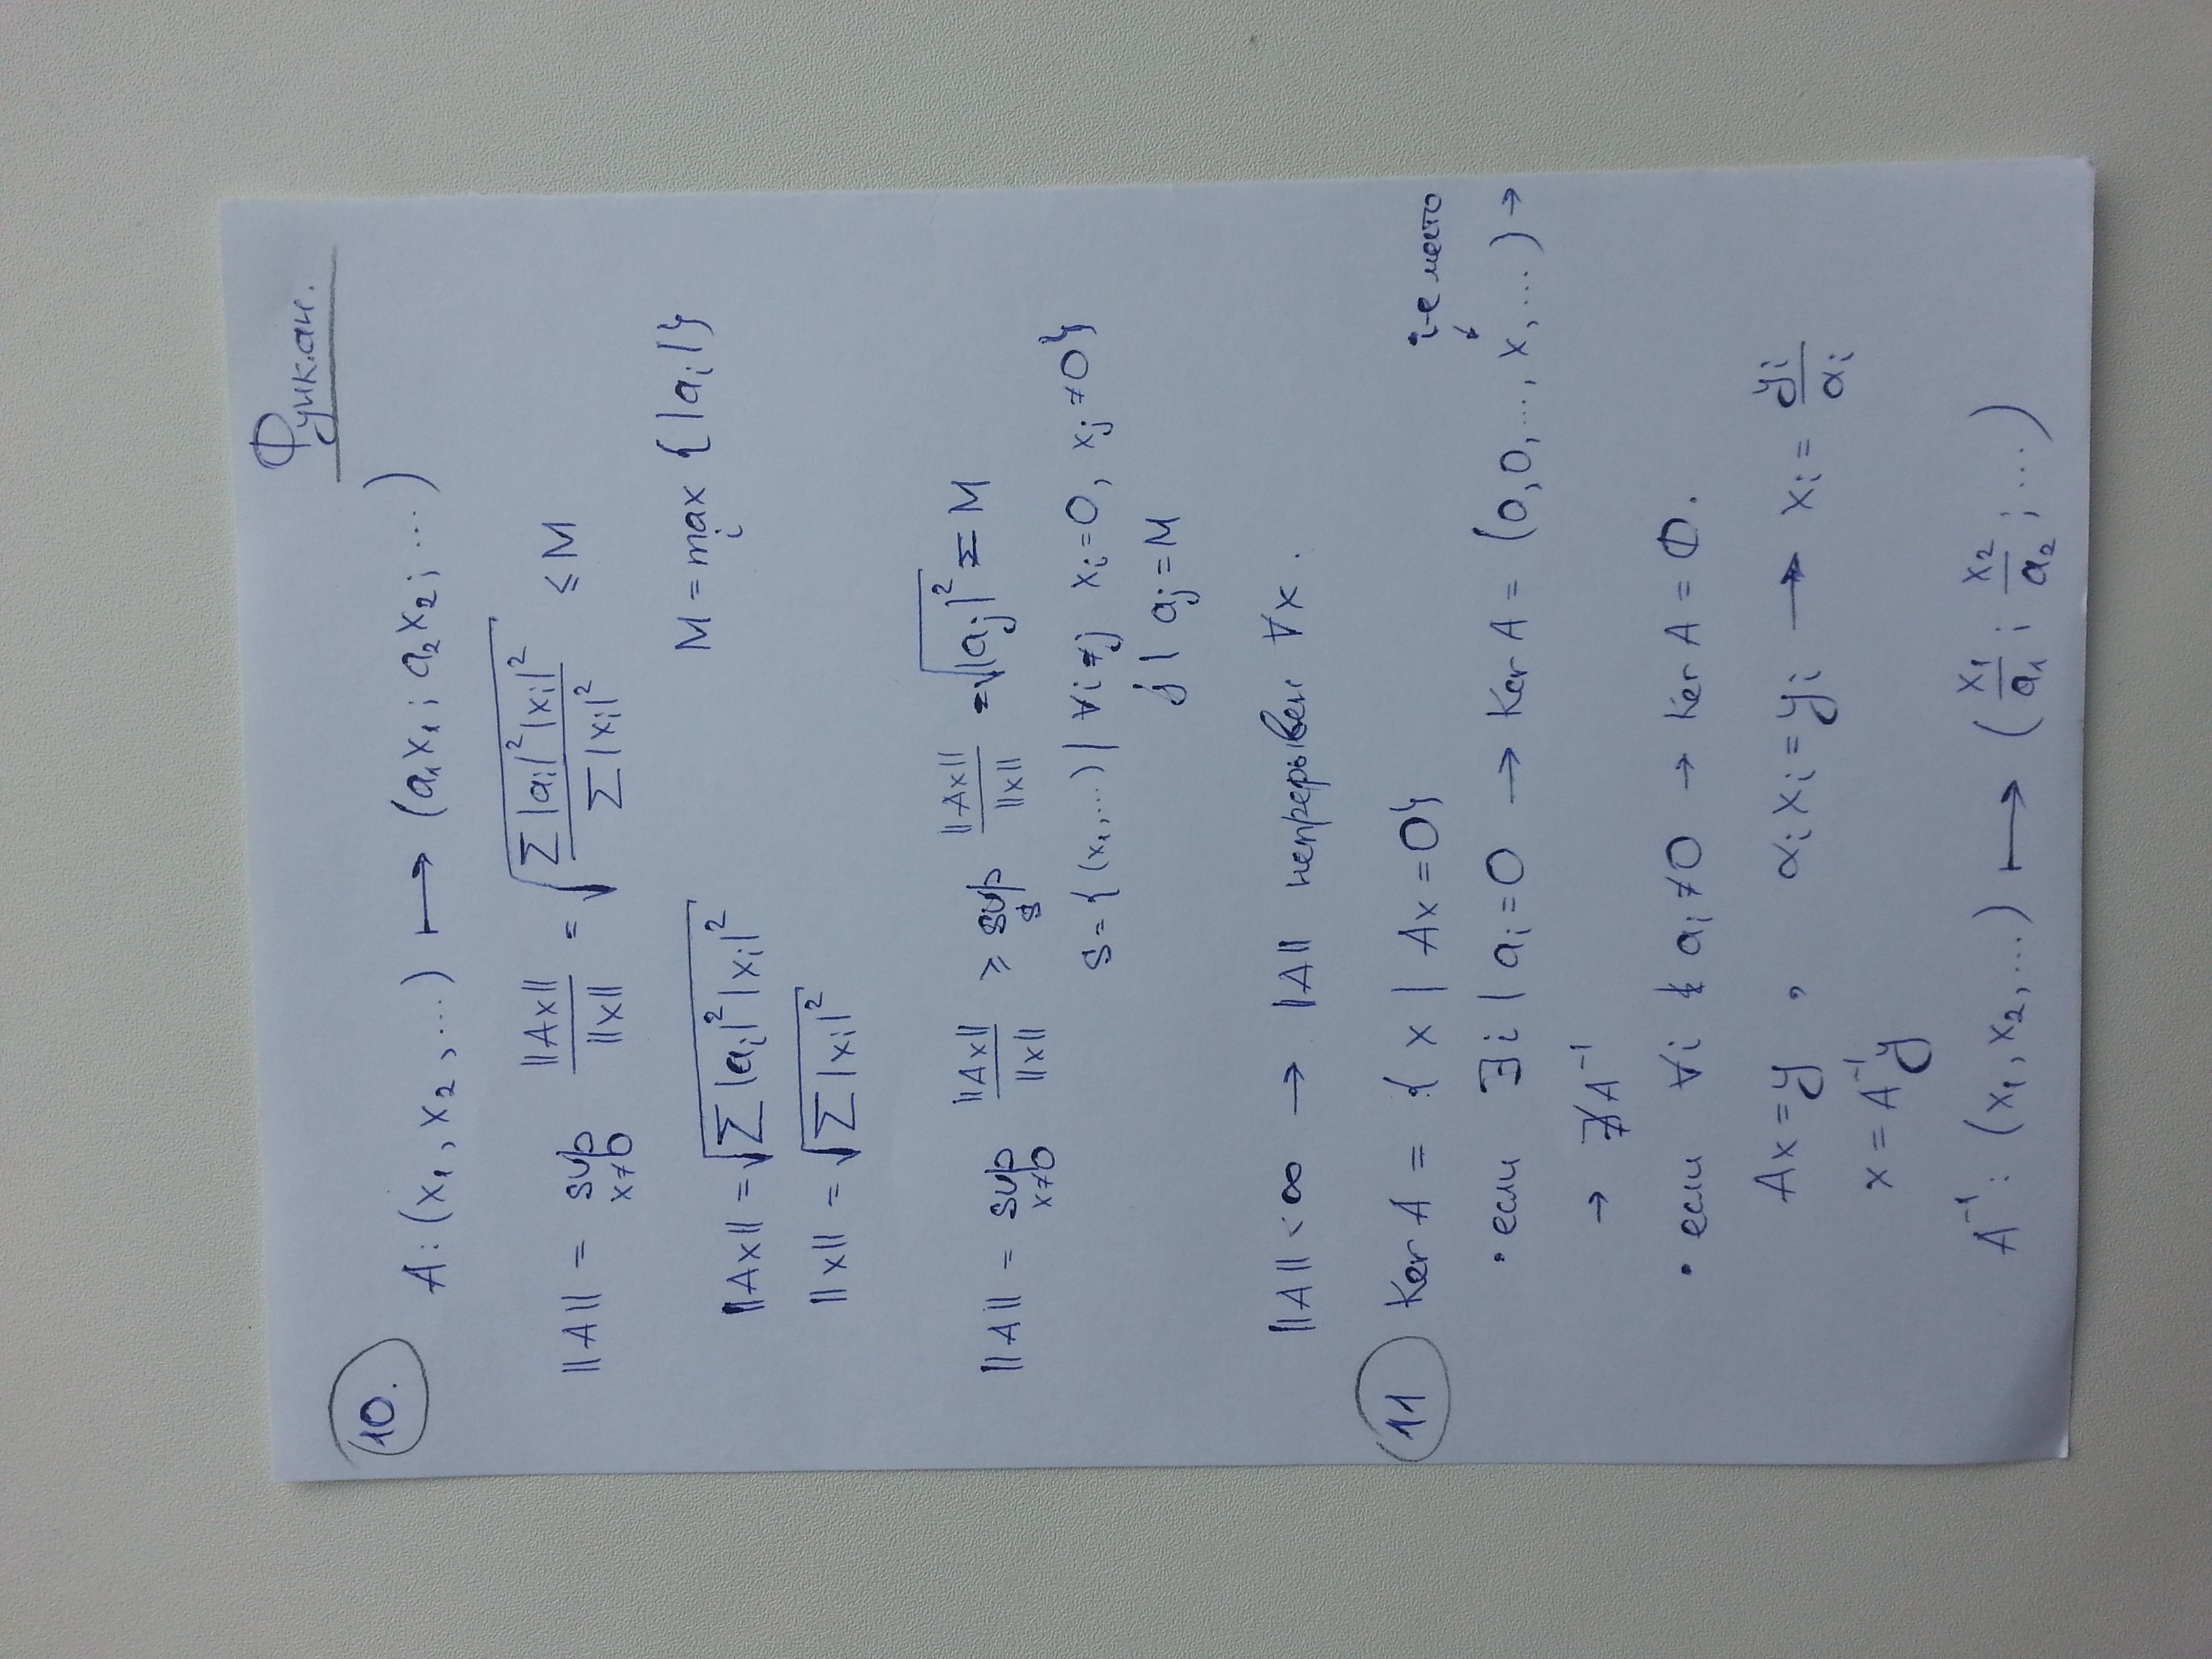 Функ.ан.
10.
A: (x₁, x₂, ...) ⟼ (a₁x₁; a₂x₂; ...)
||A|| = sup_{x≠0} ||Ax|| / ||x|| = √(Σ|aᵢ|²|xᵢ|² / Σ|xᵢ|²) ≤ M
M = max_i {|aᵢ|}
||Ax|| = √(Σ|aᵢ|²|xᵢ|²)
||x|| = √(Σ|xᵢ|²)
||A|| = sup_{x≠0} ||Ax|| / ||x|| ≥ sup_S ||Ax|| / ||x|| = √(|aⱼ|²) = M
S = {(x₁, ...) | ∀i≠j xᵢ=0, xⱼ≠0}
j | aⱼ = M
||A|| < ∞ → ||A|| непрерывен ∀x.
11 Ker A = { x | Ax = 0}
i-е место
• если ∃i | aᵢ = 0 → Ker A = (0, 0, ..., x, ...) →
→ ∄ A⁻¹
• если ∀i aᵢ ≠ 0 → Ker A = ∅.
Ax = y , αᵢxᵢ = yᵢ → xᵢ = yᵢ / αᵢ
x = A⁻¹y
A⁻¹: (x₁, x₂, ...) ⟼ (x₁/a₁; x₂/a₂; ...)